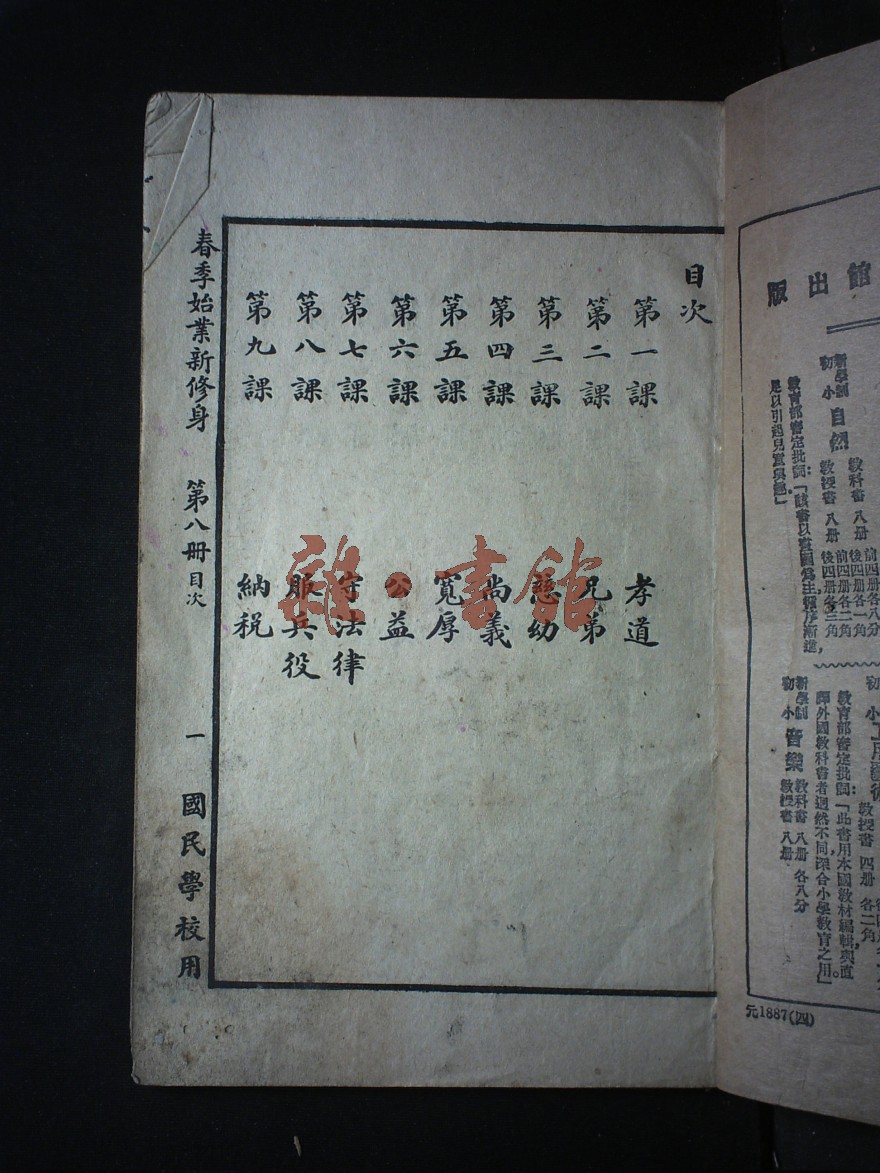 館出版
新學制
初小
自然
教科書 八册 前四册各八分
後四册各一角
教授書 八册 前四册各二角
後四册各三角
教育部審定批詞：「該書以兒童爲主體序漸進，
足以引起兒童興趣」
初小
教授書 四册 各二角
教育部審定批詞：「此書用本國教材編輯與直
譯外國教科書者迥然不同深合小學教育之用」。
新學制
初小
音樂
教科書 八册 各八分
教授書 八册
元1887(四)
目次
第一課 孝道
第二課 兄弟
第三課 慈幼
第四課 尚義
第五課 寬厚
第六課 公益
第七課 守法律
第八課 服兵役
第九課 納税
春季始業新修身 第八册目次 一 國民學校用
雜·書館